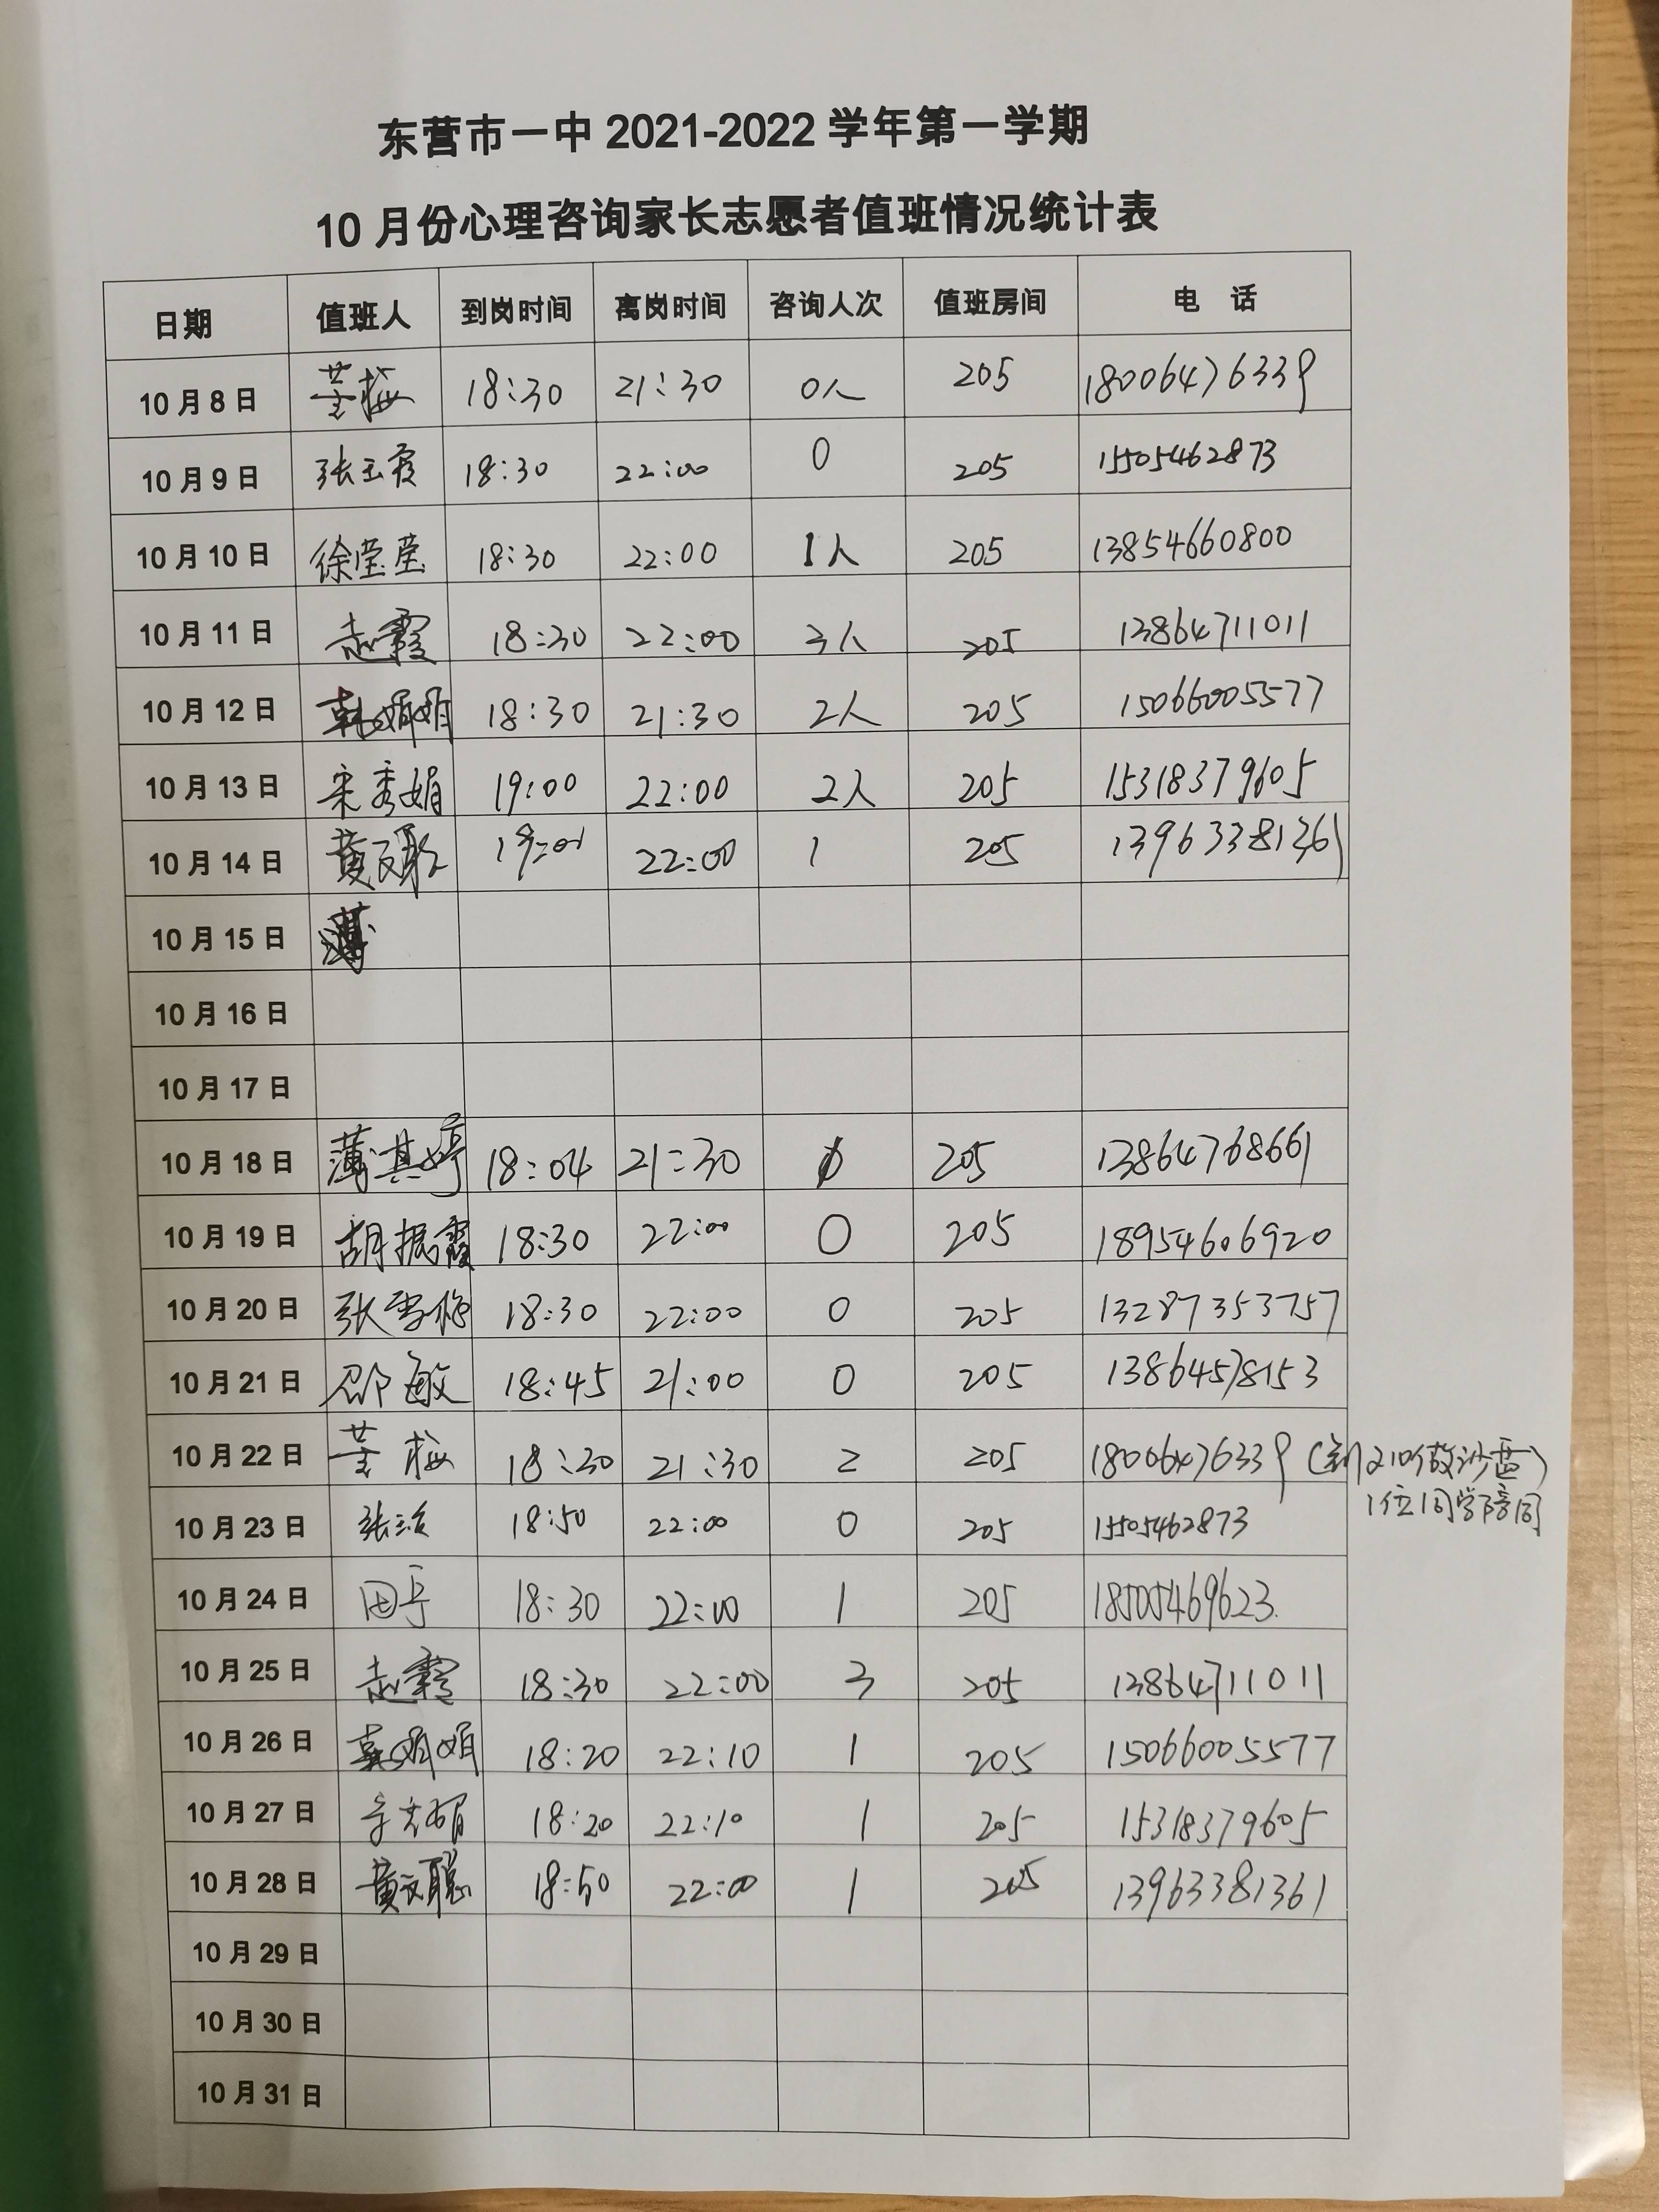 东营市一中 2021-2022 学年第一学期
10 月份心理咨询家长志愿者值班情况统计表
日期 值班人 到岗时间 离岗时间 咨询人次 值班房间 电 话
10 月 8 日 董梅 18:30 21:30 0人 205 18006476339
10 月 9 日 张玉霞 18:30 22:00 0 205 15505462873
10 月 10 日 徐莹莹 18:30 22:00 1人 205 13854660800
10 月 11 日 赵霞 18:30 22:00 3人 205 13864711011
10 月 12 日 韩娟娟 18:30 21:30 2人 205 15066005577
10 月 13 日 宋秀娟 19:00 22:00 2人 205 15318379605
10 月 14 日 黄文聪 22:00 1 205 13963381361
10 月 15 日
10 月 16 日
10 月 17 日
10 月 18 日 薄其婷 18:04 21:30 0 205 13864768661
10 月 19 日 胡振霞 18:30 22:00 0 205 18954606920
10 月 20 日 张雪梅 18:30 22:00 0 205 13287353757
10 月 21 日 邵敏 18:45 21:00 0 205 13864578153
10 月 22 日 董梅 18:30 21:30 2 205 18006476339 (到210做沙盘)
1位同学陪同
10 月 23 日 18:50 22:00 0 205 15505462873
10 月 24 日 18:30 22:00 1 205 18505469623
10 月 25 日 赵霞 18:30 22:00 3 205 13864711011
10 月 26 日 韩娟娟 18:20 22:10 1 205 15066005577
10 月 27 日 18:20 22:10 1 205 15318379605
10 月 28 日 黄文聪 18:50 22:00 1 205 13963381361
10 月 29 日
10 月 30 日
10 月 31 日